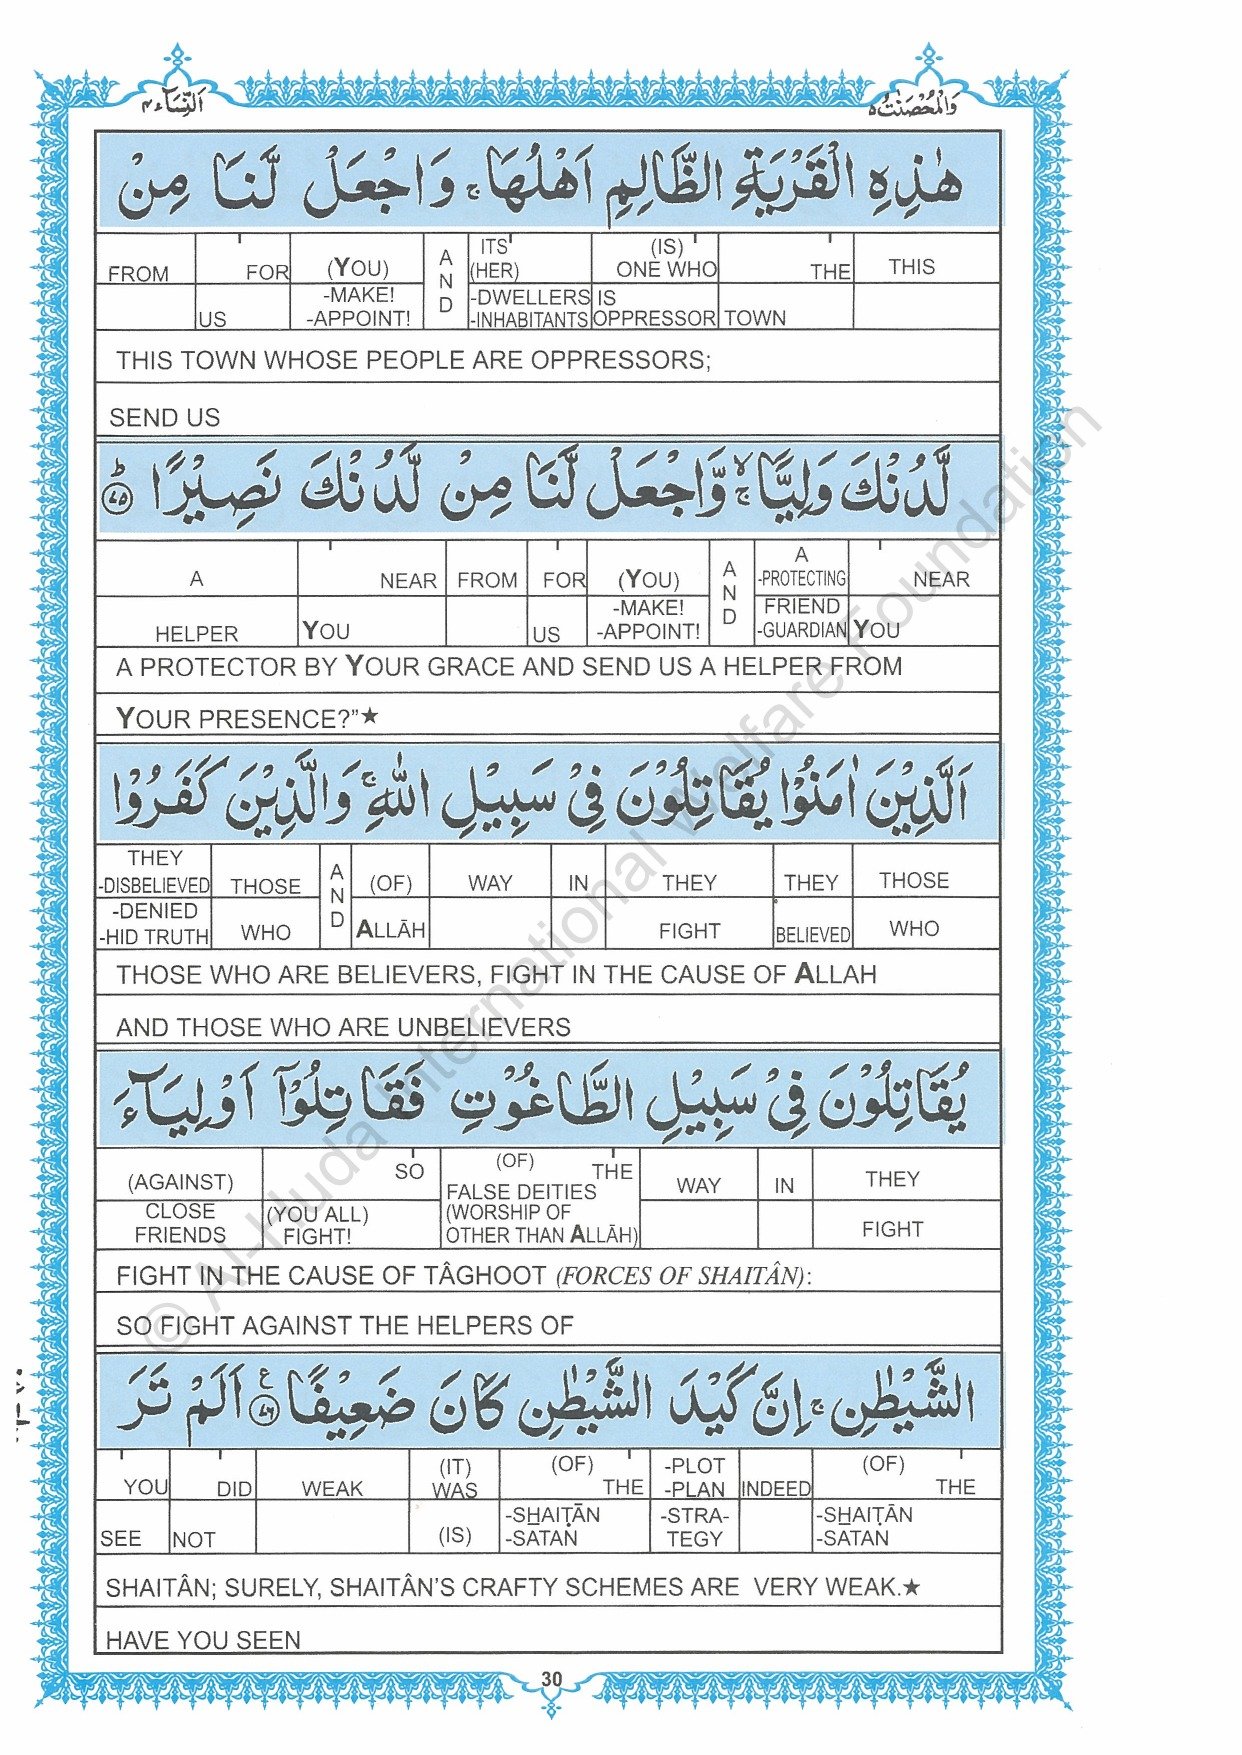 اَلنِّسَآء۴ وَالْمُحْصَنٰتُ۵
هٰذِهِ الْقَرْيَةِ الظَّالِمِ اَهْلُهَا ۚ وَاجْعَلْ لَّنَا مِنْ
FROM FOR (YOU) AND ITS (HER) (IS) ONE WHO THE THIS
US -MAKE! -APPOINT! -DWELLERS -INHABITANTS IS OPPRESSOR TOWN
THIS TOWN WHOSE PEOPLE ARE OPPRESSORS;
SEND US
لَّدُنْكَ وَلِيًّا ۙۚ وَّاجْعَلْ لَّنَا مِنْ لَّدُنْكَ نَصِيْرًا ؕ ۷۵
A NEAR FROM FOR (YOU) AND A -PROTECTING NEAR
HELPER YOU US -MAKE! -APPOINT! FRIEND -GUARDIAN YOU
A PROTECTOR BY YOUR GRACE AND SEND US A HELPER FROM
YOUR PRESENCE?”★
اَلَّذِيْنَ اٰمَنُوْا يُقَاتِلُوْنَ فِيْ سَبِيْلِ اللّٰهِ ۚ وَالَّذِيْنَ كَفَرُوْا
THEY -DISBELIEVED THOSE AND (OF) WAY IN THEY THEY THOSE
-DENIED -HID TRUTH WHO ALLĀH FIGHT BELIEVED WHO
THOSE WHO ARE BELIEVERS, FIGHT IN THE CAUSE OF ALLAH
AND THOSE WHO ARE UNBELIEVERS
يُقَاتِلُوْنَ فِيْ سَبِيْلِ الطَّاغُوْتِ فَقَاتِلُوْۤا اَوْلِيَآءَ
(AGAINST) SO (OF) THE WAY IN THEY
CLOSE FRIENDS (YOU ALL) FIGHT! FALSE DEITIES (WORSHIP OF OTHER THAN ALLĀH) FIGHT
FIGHT IN THE CAUSE OF TÂGHOOT (FORCES OF SHAITÂN):
SO FIGHT AGAINST THE HELPERS OF
الشَّيْطٰنِ ۚ اِنَّ كَيْدَ الشَّيْطٰنِ كَانَ ضَعِيْفًا ۷۶ ع اَلَمْ تَرَ
YOU DID WEAK (IT) WAS (OF) THE -PLOT -PLAN INDEED (OF) THE
SEE NOT (IS) -SHAIṬĀN -SATAN -STRA-TEGY -SHAIṬĀN -SATAN
SHAITÂN; SURELY, SHAITÂN’S CRAFTY SCHEMES ARE VERY WEAK.★
HAVE YOU SEEN
30
© Al-Huda International Welfare Foundation